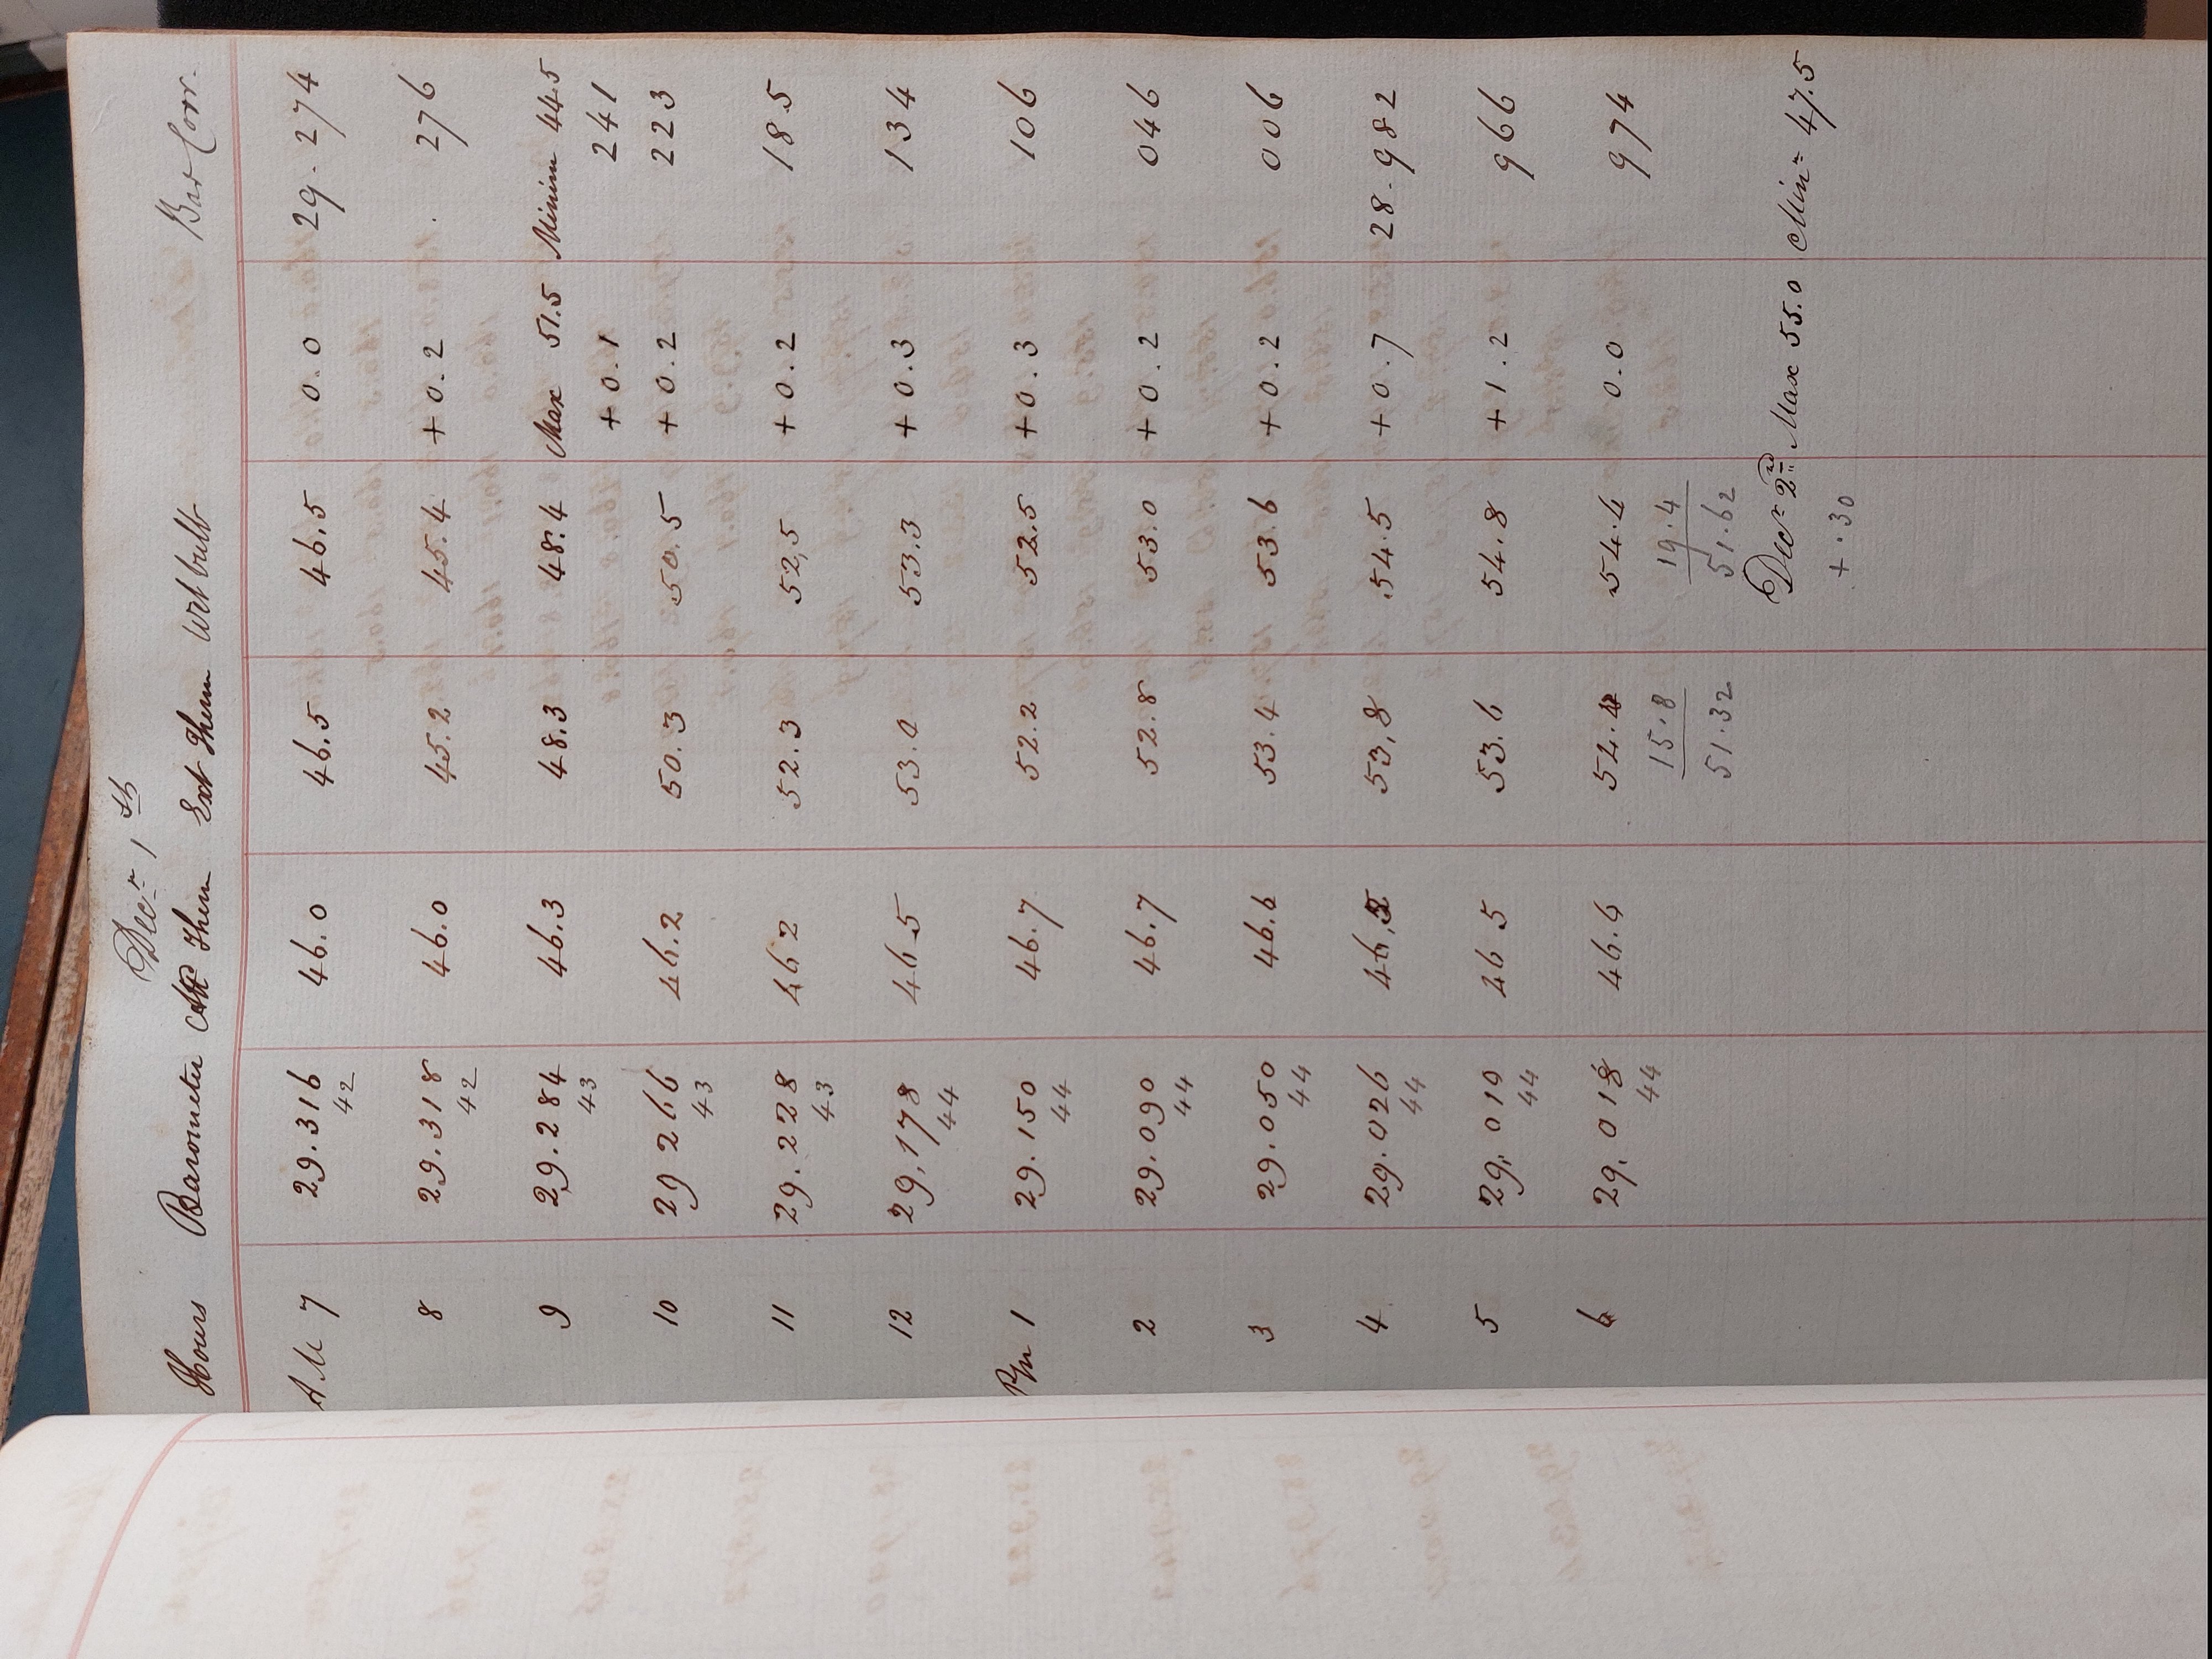 Decr 1st
Hours Barometer Att Therm Ext Therm Wet bulb Bar Corr.
A M 7 29.316 46.0 46.5 46.5 0.0 29.274
42
8 29.318 46.0 45.2 45.4 +0.2 276
42
9 29.284 46.3 48.3 48.4 Max 51.5 Minim 44.5
43 +0.1 241
10 29 266 46.2 50.3 50.5 +0.2 223
43
11 29.228 46 2 52.3 52,5 +0.2 185
43
12 29,178 46 5 53.0 53.3 +0.3 134
44
Pm 1 29.150 46.7 52.2 52.5 +0.3 106
44
2 29.090 46.7 52.8 53.0 +0.2 046
44
3 29.050 46.6 53.4 53.6 +0.2 006
44
4 29.026 53,8 54.5 +0.7 28.982
44
5 29, 010 46 5 53.6 54.8 +1.2 966
44
6 29, 018 46.6 54.4 54.4 0.0 974
44 15.8 19.4
51.32 51.62
Decr 2nd Max 55.0 Minm 47.5
+ .30